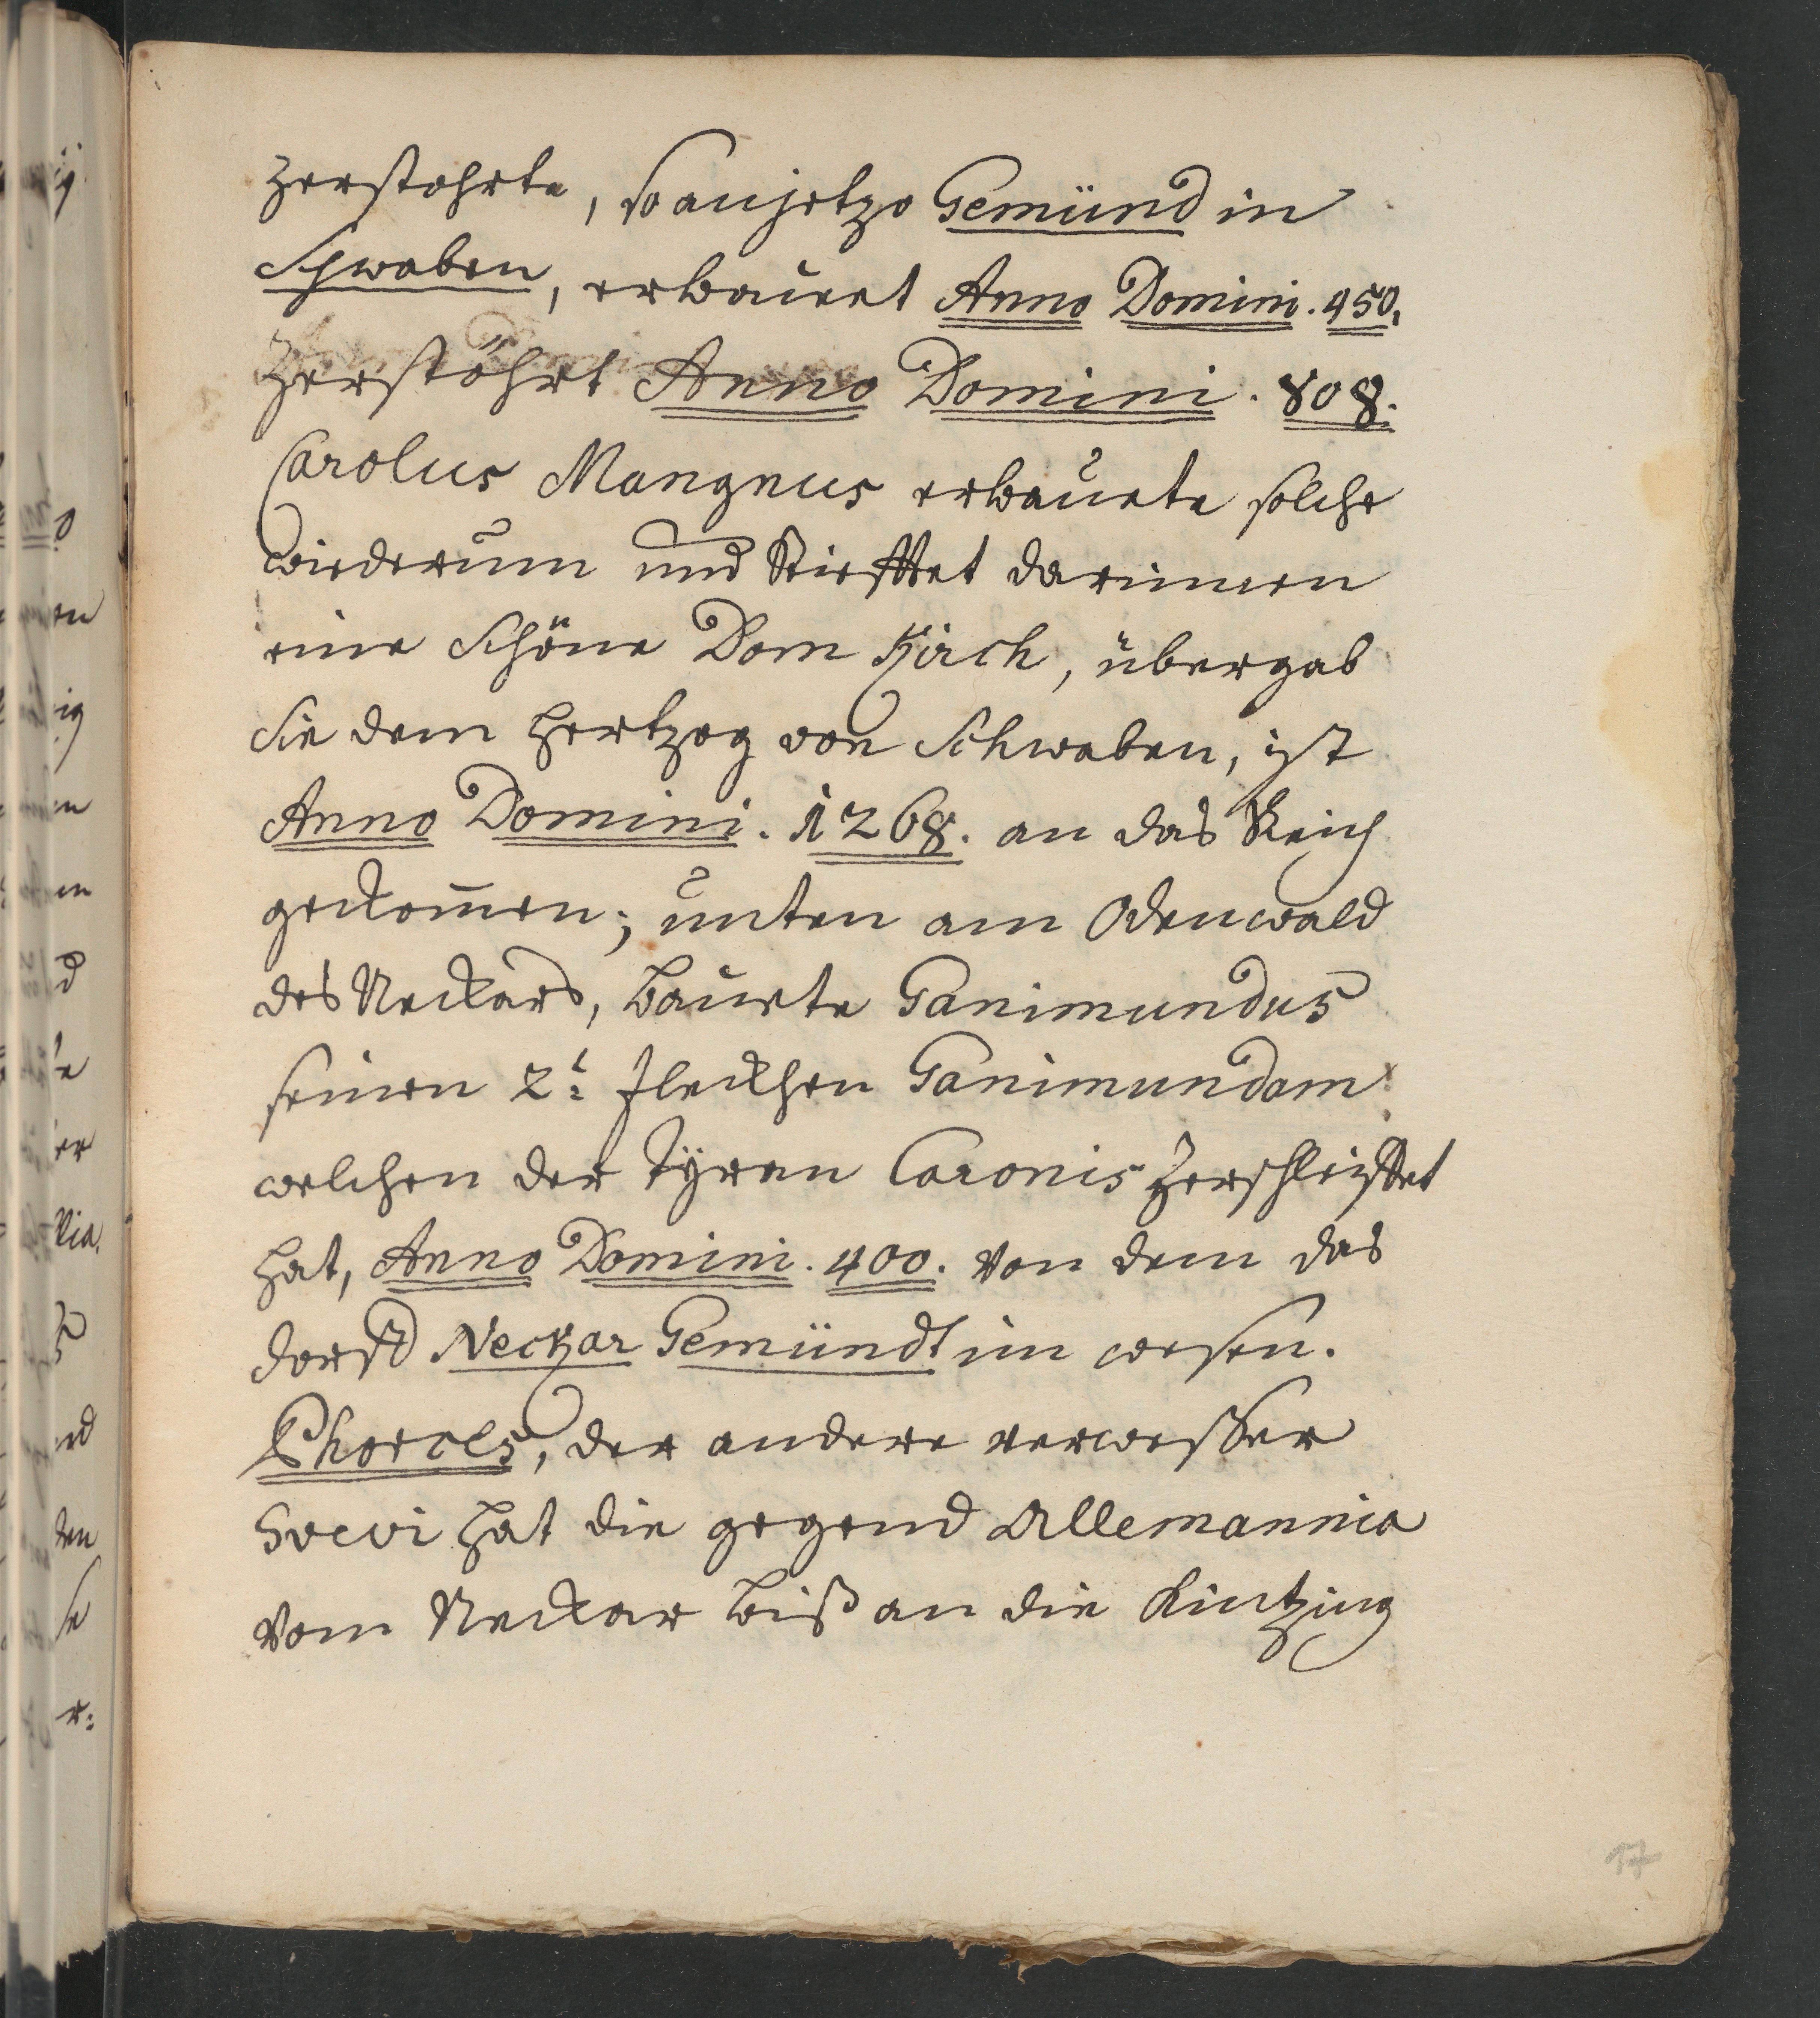 zerstohrte, so anjetzo Gemünd in
Schwaben, erbauet Anno Domini. 450.
Zerstöhrt Anno Domini. 808.
Carolus Mangnus erbauete solche
wiederum und Stiefftet darinnen
eine Schöne Dom Kirch, übergab
Sie dem Hertzog von Schwaben, ist
Anno Domini. 1268. an das Reich
gekom̄en; unten am Odenwald
des Neckars, bauete Ganimundus
seinen 2t: Fleckhen Ganimundam
welchen der Tyran Caronis Zerschleisset
hat, Anno Domini. 400. von dem das
dorff Neckar Gemündt im wesen.
Phorces, der andere verwesser
Svevi hat die gegend Allemannia
vom Neckar biß an die Kintzing
17